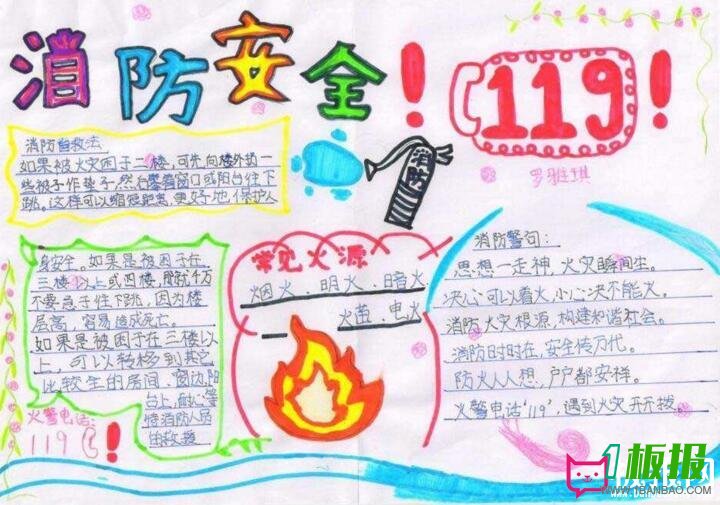 消防安全！
119！
罗雅琪
消防自救法
如果被火灾困于二楼，可先向楼外扔一
些被子作垫子，然后攀着窗口或阳台往下
跳。这样可以缩短距离，更好地保护人
身安全。如果是被困于在
三楼以上或四楼，那就千万
不要急于往下跳，因为楼
层高，容易造成死亡。
如果是被困于在三楼以
上，可以转移到其它
比较安全的房间、窗边、阳
台上，耐心等
待消防人员
火警电话：
119！
消防
常见火源
烟火 明火 暗火
电火
消防警句：
思想一走神，火灾瞬间生。
决心可以着火，小心决不能火。
消防火灾根源，构建和谐社会。
消防时时在，安全传万代。
防火人人想，户户都安祥。
火警电话'119'，遇到火灾
1板报
WWW.1BANBAO.COM